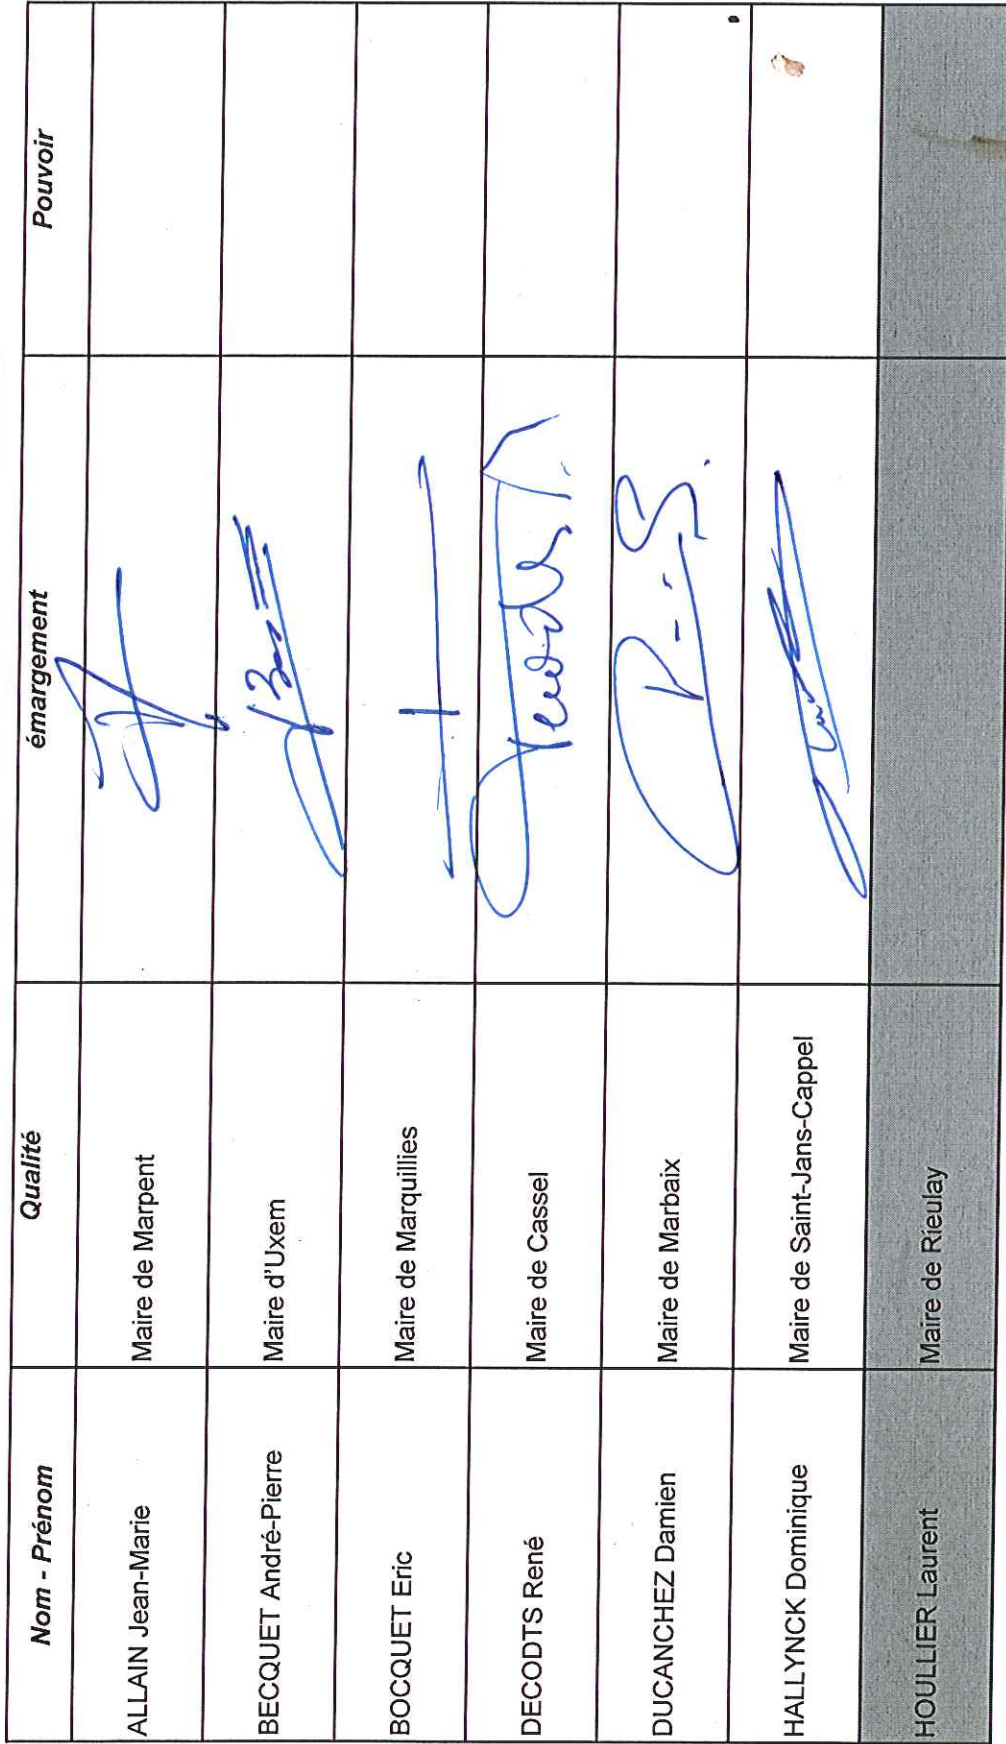 Nom - Prénom Qualité émargement Pouvoir
ALLAIN Jean-Marie Maire de Marpent
BECQUET André-Pierre Maire d'Uxem
BOCQUET Eric Maire de Marquillies
DECODTS René Maire de Cassel
DUCANCHEZ Damien Maire de Marbaix
HALLYNCK Dominique Maire de Saint-Jans-Cappel
HOULLIER Laurent Maire de Rieulay